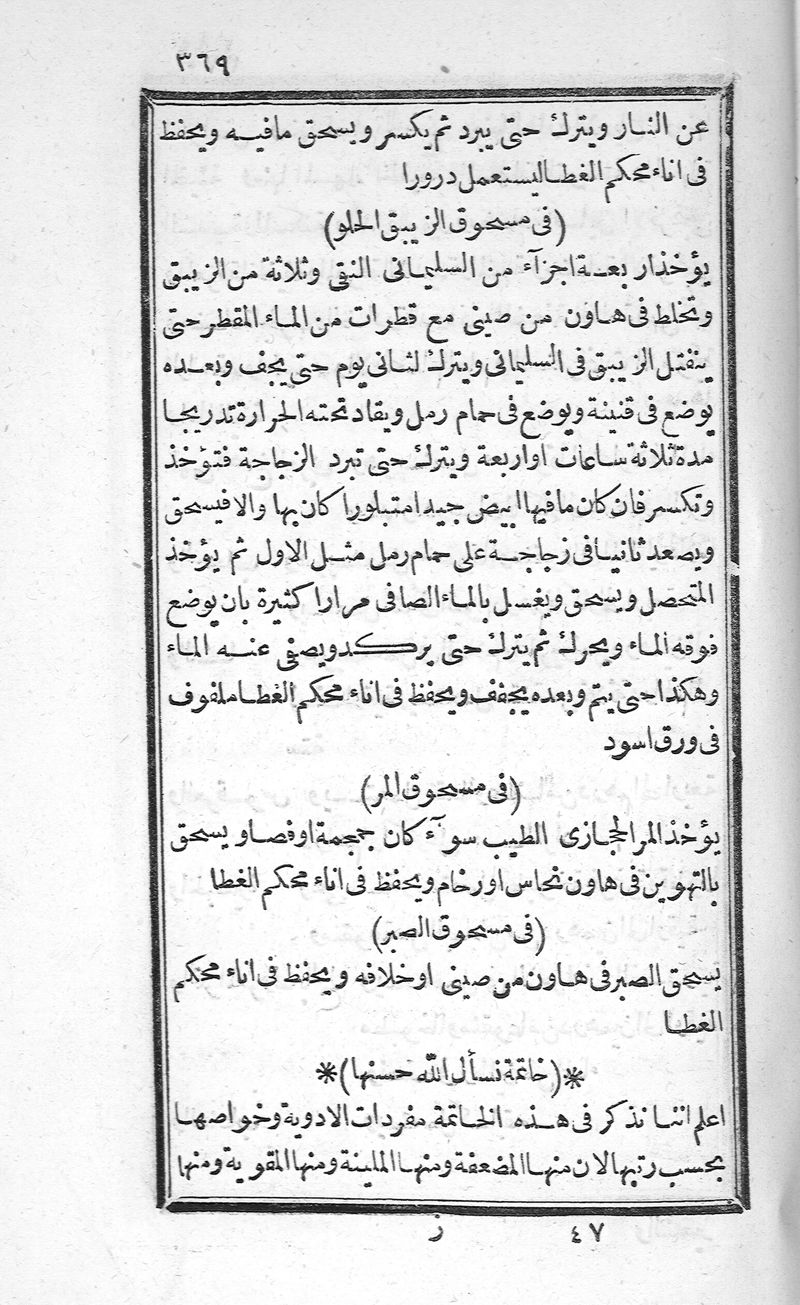 ٣٦٩
عن النار ويترك حتى يبرد ثم يكسر ويسحق مافيه ويحفظ
فى اناء محكم الغطا ليستعمل درورا
(فى مسحوق الزيبق الحلو)
يؤخذ اربعة اجزآء من السليمانى النقى وثلاثة من الزيبق
وتخلط فى هاون من صينى مع قطرات من الماء المقطر حتى
ينفتل الزيبق فى السليمانى ويترك لثانى يوم حتى يجف وبعده
يوضع فى قنينة ويوضع فى حمام رمل ويقاد تحته الحرارة تدريجا
مدة ثلاثة ساعات اواربعة ويترك حتى تبرد الزجاجة فتؤخذ
وتكسر فان كان مافيها ابيض جيدا متبلورا كان بها والا فيسحق
ويصعد ثانيا فى زجاجة على حمام رمل مثل الاول ثم يؤخذ
المتحصل ويسحق ويغسل بالماء الصافى مرارا كثيرة بان يوضع
فوقه الماء ويحرك ثم يترك حتى يركد ويصفى عنه الماء
وهكذا حتى يتم وبعده يجفف ويحفظ فى اناء محكم الغطا ملفوف
فى ورق اسود
(فى مسحوق المر)
يؤخذ المر الحجازى الطيب سوآء كان جمجمة اوفصا ويسحق
بالتهوين فى هاون نحاس اورخام ويحفظ فى اناء محكم الغطا
(فى مسحوق الصبر)
يسحق الصبر فى هاون من صينى اوخلافه ويحفظ فى اناء محكم
الغطا
*(خاتمة نسأل الله حسنها)*
اعلم اننا نذكر فى هذه الخاتمة مفردات الادوية وخواصها
بحسب رتبها لان منها المضعفة ومنها الملينة ومنها المقوية ومنها
٤٧ ز